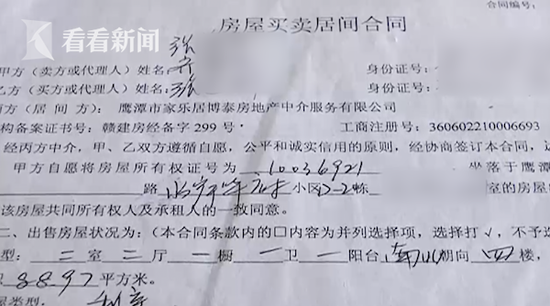 合同编号:
看看新闻
房屋买卖居间合同
甲方(卖方或代理人)姓名: 身份证号:
乙方(买方或代理人)姓名:张 身份证号:
丙方(居间方):鹰潭市家乐居博泰房地产中介服务有限公司
构备案证书号:赣建房经备字 299 号 工商注册号:360602210006693
经丙方中介,甲、乙双方遵循自愿,公平和诚实信用的原则,经协商签订本合同,
甲方自愿将房屋所有权证号为 10036921 坐落于鹰潭
路 小区 2-2栋 室的房屋
该房屋共同所有权人及承租人的一致同意。
二、出售房屋状况为:(本合同条款内的□内容为并列选择项,选择打√,不予选
型: 二 室 二 厅 一 橱 一 卫 一 阳台 南北 朝向 四 楼,
88.97 平方米。